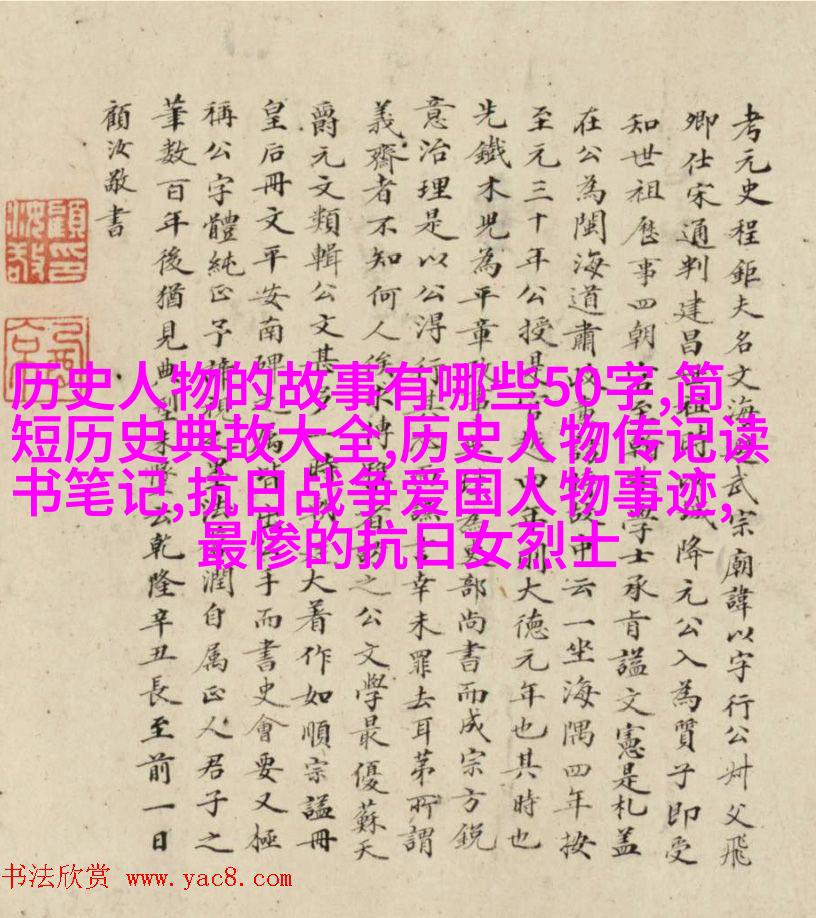 历史人物的故事有哪些50字,简
短历史典故大全,历史人物传记读
书笔记,抗日战争爱国人物事迹,
最惨的抗日女烈士
考元史程鉅夫名文海武宗廟諱以字行公叔父飛
卿仕宋通判建昌降元公入為質子即受
知世祖歷事四朝學士承肯諡文憲是札蓋
在公為閩海道肅中云一坐海隅四年按
至元三十年公授是四年則大德元年也其時也
先鐵木兒為平章為吏部尚書而成宗方銳
意治理是以公得行其言幸未罪去耳第所謂
義齋者不知何人俟博之公文學最優蘇天
爵元文類輯公文甚一時大著作如順宗諡冊
皇后冊文平安南碑手而書史會要又極
稱公字體純正潤自属正人君子之
筆数百年後猶見典乾隆辛丑長至前一日
顧汝敬書
书法欣赏 www.yac8.com